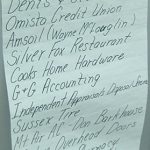 Denis &
Omista Credit Union
Amsoil (Wayne McLauglin)
Silver Fox Restaurant
Cooks Home Hardware
G+G Accounting
Independent Appraisals Disposal Services
Sussex Tire
Mt Air AC - Don Backhouse
Overhead Doors